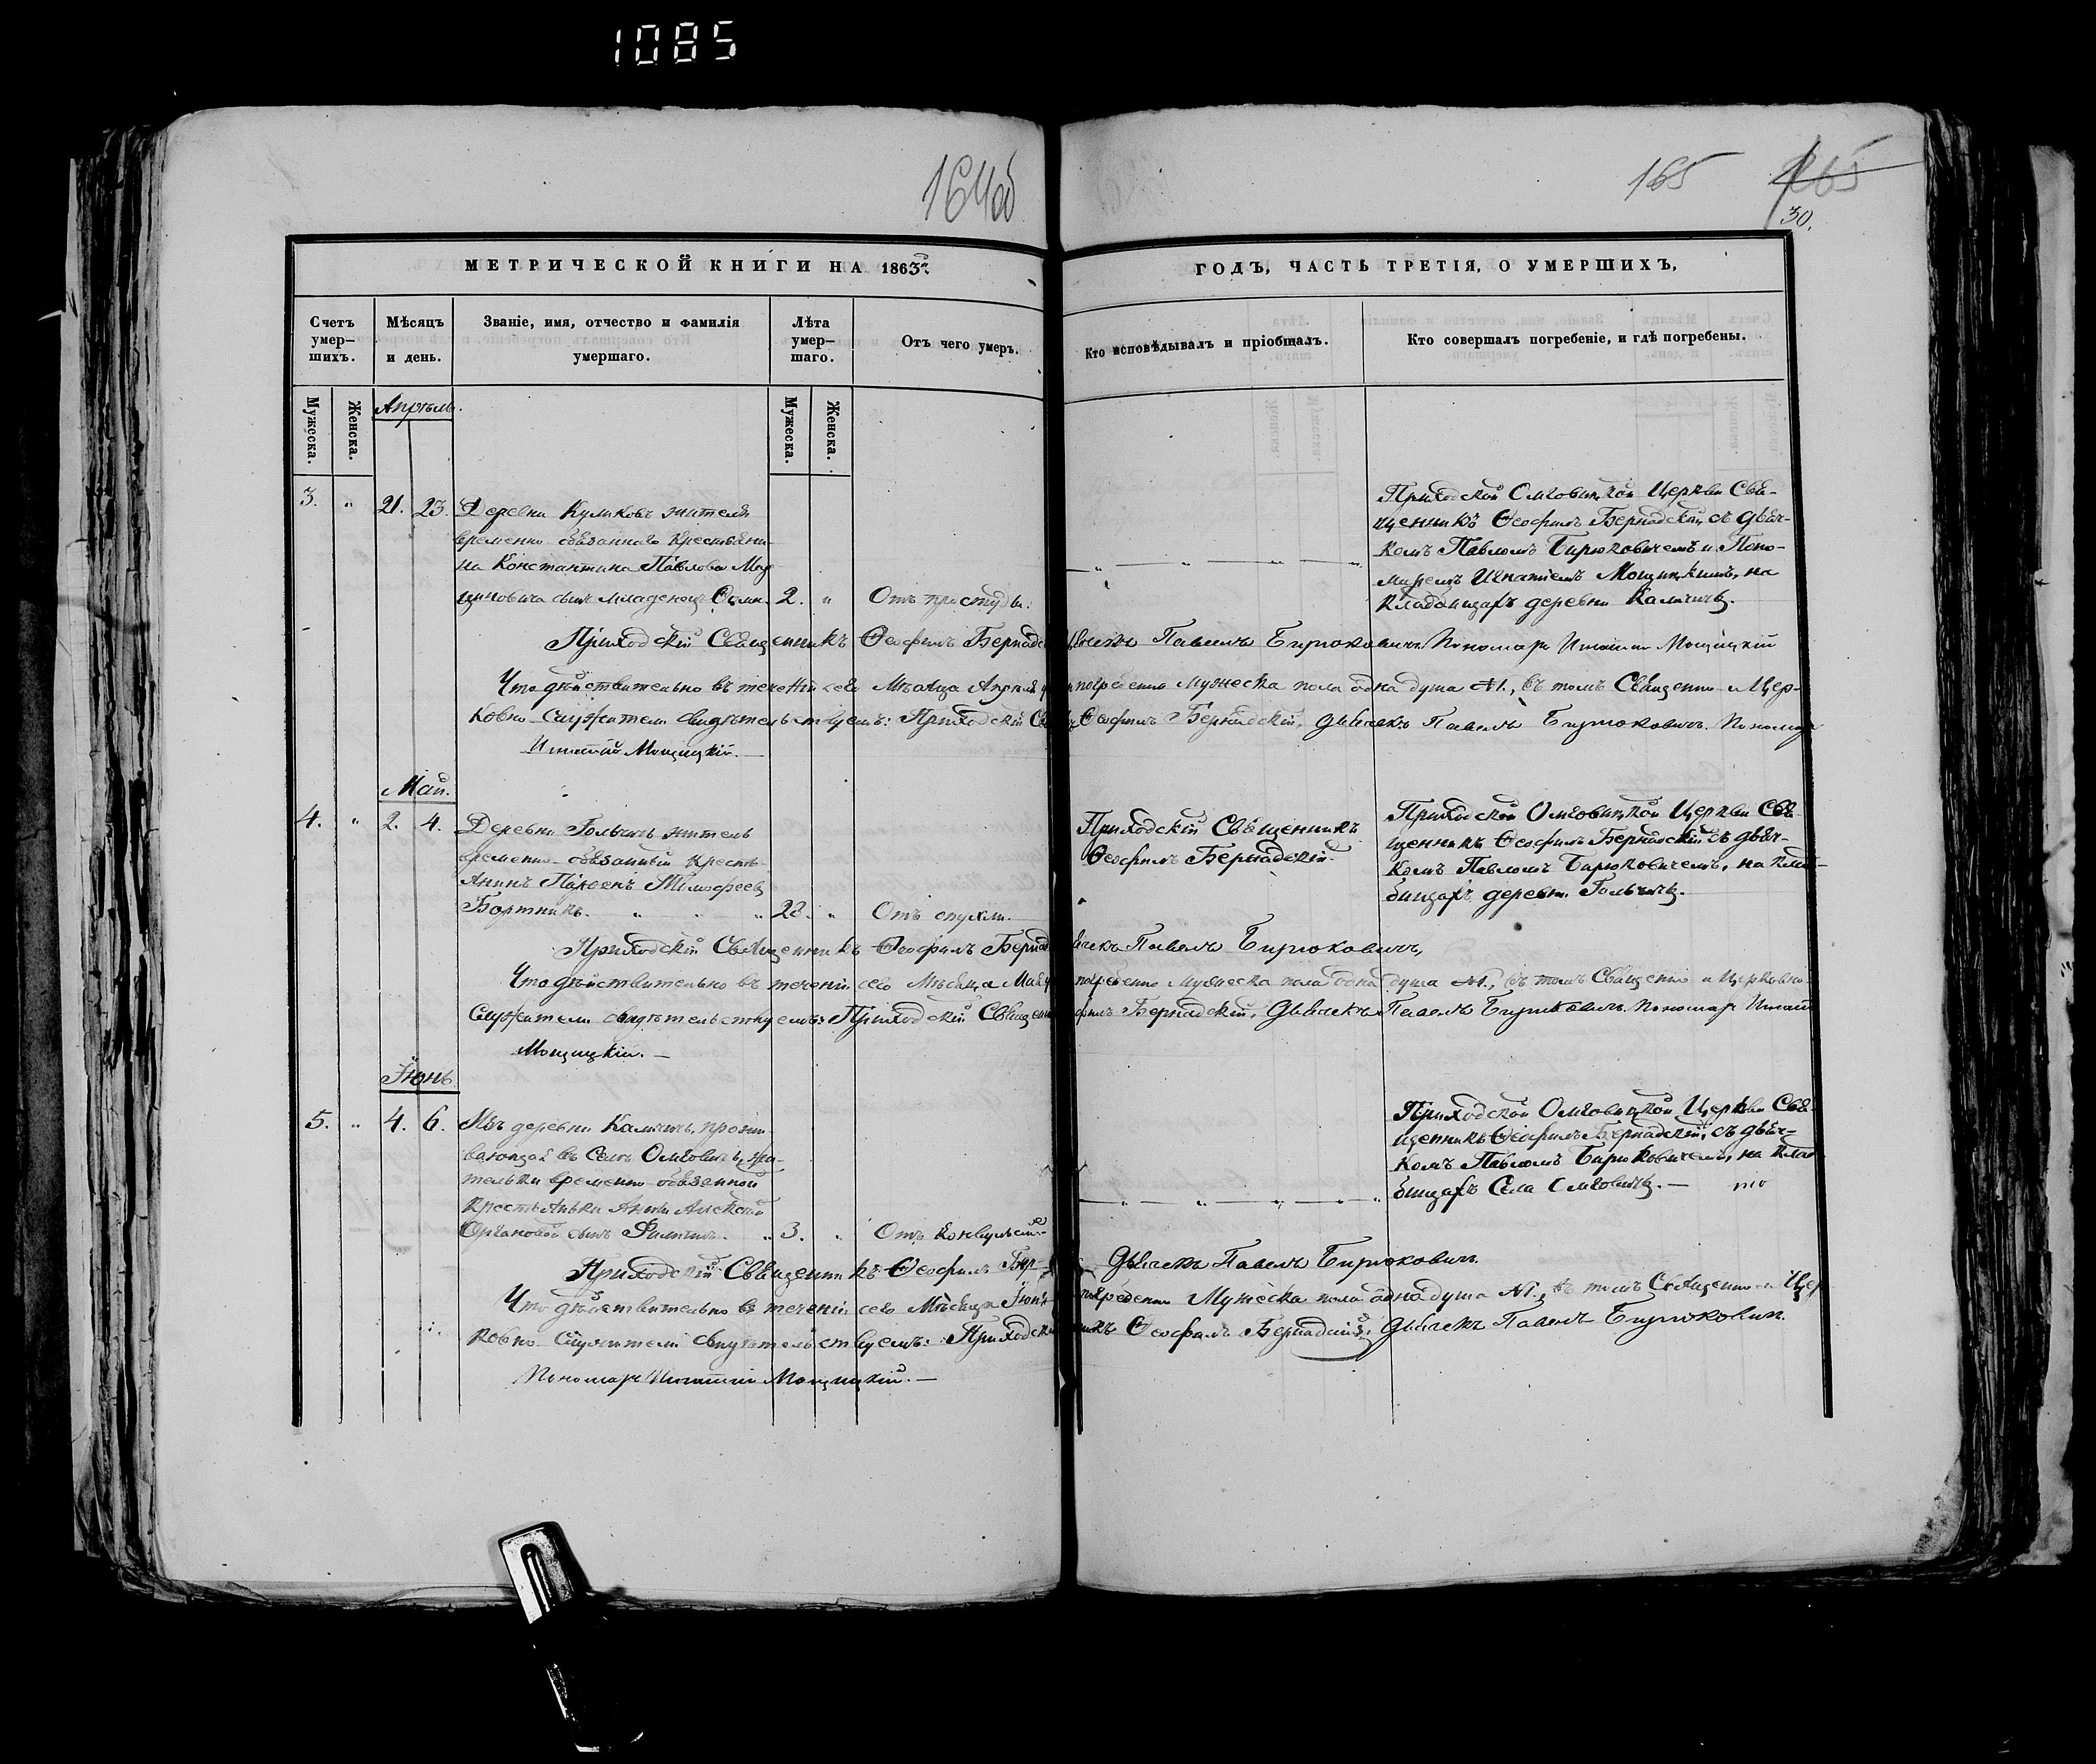 1085
164об
165
165
30.
МЕТРИЧЕСКОЙ КНИГИ НА 1863й
ГОДЪ, ЧАСТЬ ТРЕТІЯ, О УМЕРШИХЪ,
Счетъ умер-шихъ.
Мѣсяцъ и день.
Званіе, имя, отчество и фамилія умершаго.
Лѣта умер-шаго.
Отъ чего умеръ.
Кто исповѣдывалъ и пріобщалъ.
Кто совершалъ погребеніе, и гдѣ погребены.
Мужеска.
Женска.
Мужеска.
Женска.
Апрѣль.
3. " 21. 23. Деревни Куликовъ жителя
временно-обязаннаго крестьяни-
на Константина Павлова
сынъ младенецъ 2. " Отъ простуды.
Приходской Омговицкой Церкви Свя-
щенникъ Ѳеофилъ Бернадскій съ дьяч-
комъ Павломъ Бирюковичемъ и Поно-
маремъ Игнатіемъ Мощицкимъ, на
кладбищахъ деревни Калчичъ.
Приходскій Священникъ Ѳеофилъ Бернадс Дьячекъ Павелъ Бирюковичъ Пономарь Игнатій Мощицкій
Что дѣйствительно въ теченіи сего Мѣсяца Апрѣля погребенно мужеска пола одна душа №1., въ томъ Священно и Цер-
ковно-Служители свидѣтельствуемъ: Приходскій Ѳеофилъ Бернадскій, Дьячекъ Павелъ Бирюковичъ. Пономарь
Игнатій Мощицкій.—
Май.
4. " 2. 4. Деревни Гольчичъ житель
временно-обязанный кресть-
янинъ Парѳенъ Тимофеевъ
Бортникъ. " " " 28. " Отъ опухли.
Приходскій Священникъ
Ѳеофилъ Бернадскій
Приходской Омговицкой Церкви Свя-
щенникъ Ѳеофилъ Бернадскій съ дьяч-
комъ Павломъ Бирюковичемъ, на клад-
бищахъ деревни Гольчичъ.
Приходскій Священникъ Ѳеофилъ Бернад Дьячекъ Павелъ Бирюковичъ,
Что дѣйствительно въ теченіи сего Мѣсяца Мая погребенно мужеска пола одна душа №1., въ томъ Священно и Церковно-
Служители свидѣтельствуемъ: Приходскій Священ Бернадскій, Дьячекъ Павелъ Бирюковичъ. Пономарь Игнатій
Мощицкій.—
Іюнь.
5. " 4. 6. Изъ деревни Калчичъ, прожи-
вающей въ Селѣ Омговичъ, жи-
тельки временно-обязанной
крестьянки Анны
Органовой сынъ Филиппъ. " 3. " Отъ конвульсій.
Приходской Омговицкой Церкви Свя-
щенникъ Ѳеофилъ Бернадскій, съ дьяч-
комъ Павломъ Бирюковичемъ, на клад-
бищахъ Села Омговичъ.—
Приходскій Священникъ Ѳеофилъ Бер- Дьячекъ Павелъ Бирюковичъ.
Что дѣйствительно въ теченіи сего Мѣсяца Іюня погребенно Мужеска пола одна душа №1., въ томъ Священно и Цер-
ковно-Служители свидѣтельствуемъ: Приходскій Ѳеофилъ Бернадскій, Дьячекъ Павелъ Бирюковичъ.
Пономарь Игнатій Мощицкій.—